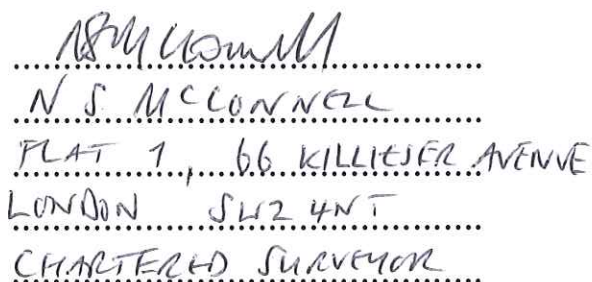 NS McConnell
N S MCCONNELL
FLAT 1, 66 KILLIESER AVENUE
LONDON SW2 4NT
CHARTERED SURVEYOR